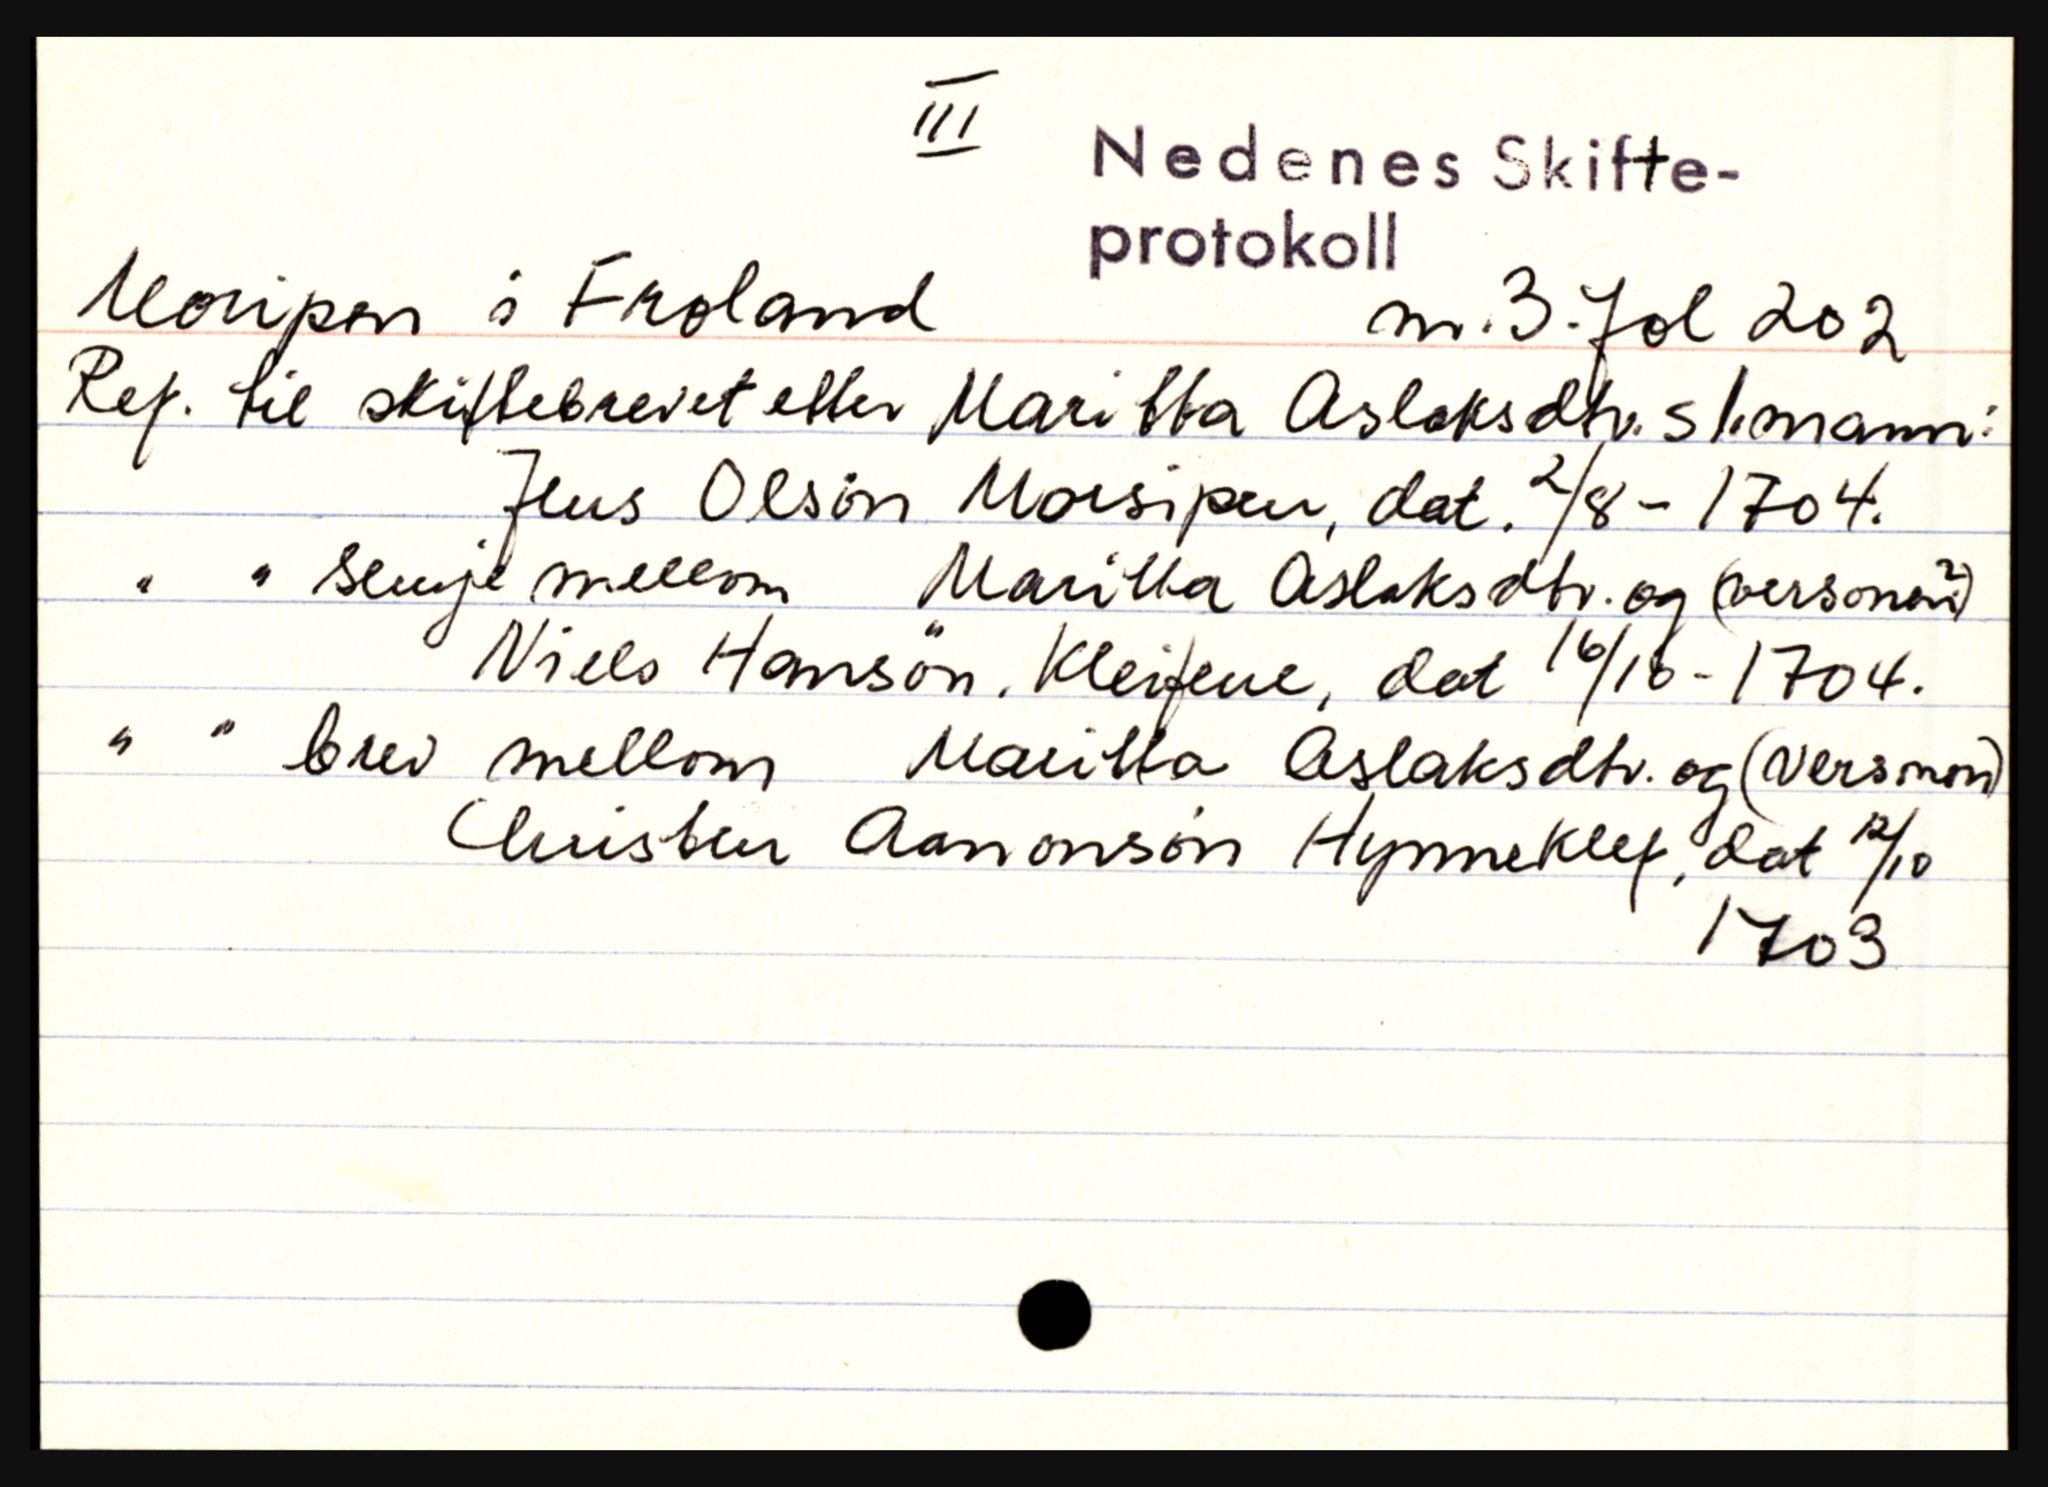 III
Nedenes Skifte-
protokoll
Moripen i Froland nr. 3. fol 202
Ref. til skiftebrevet etter Maritta Aslaksdtr. s 1. mann:
Jens Olsön Morsipen, dat. 2/8 - 1704.
" " semje mellom Maritta Aslaksdtr. og (versonen?)
Niels Hansön. Kleifene, dat 16/10 - 1704.
" " brev mellom Maritta Aslaksdtr. og (Versonen)
Christen Aanonsön Hynneklef, dat 12/10
1703